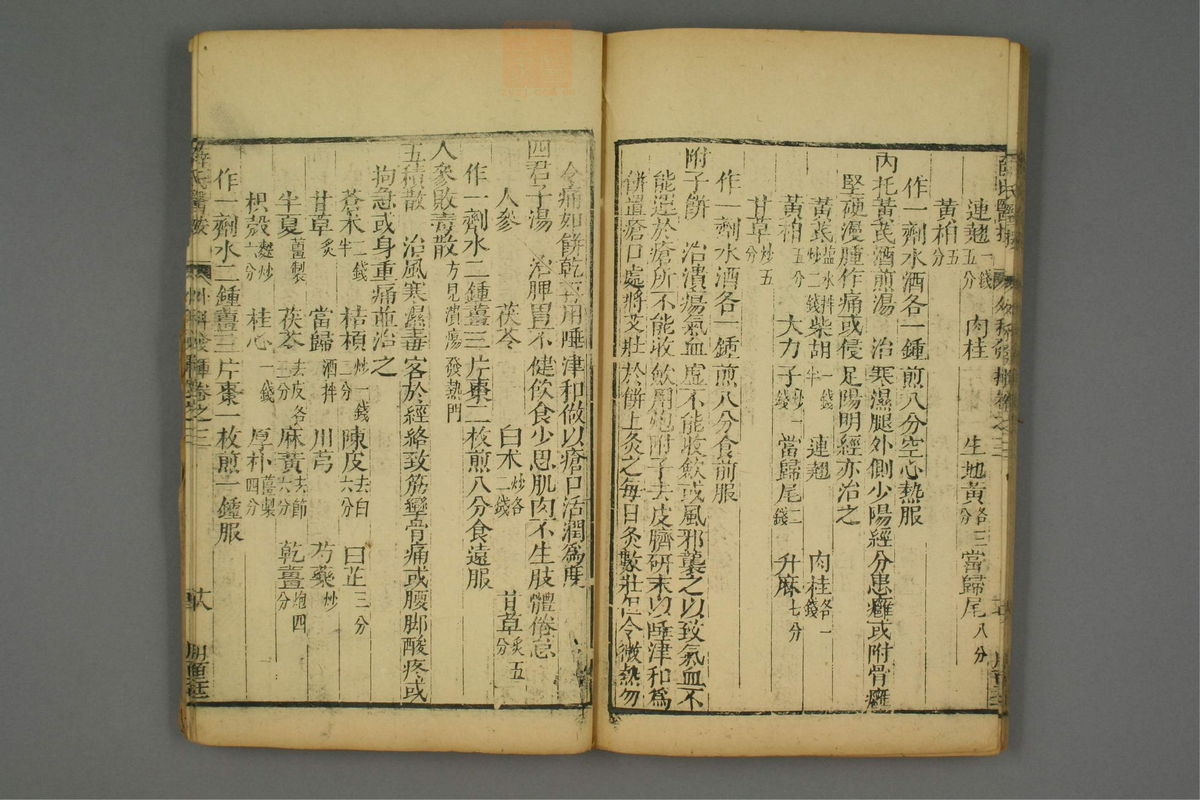 連翹一錢五分 肉桂 生地黃各三分 當歸尾八分
黃柏五分
作一劑水酒各一鍾煎八分空心熱服
內托黃芪酒煎湯 治寒濕腿外側少陽經分患癰或附骨癰
堅硬漫腫作痛或侵足陽明經亦治之
黃芪鹽水拌炒二錢 柴胡一錢半 連翹 肉桂各一錢
黃柏五分 大力子炒一錢 當歸尾二錢 升麻七分
甘草炒五分
作一劑水酒各一鍾煎八分食前服
附子餅 治潰瘍氣血虛不能收斂或風邪襲之以致氣血不
能運於瘡所不能收斂用炮附子去皮臍研末以唾津和爲
餅置瘡口處將艾壯於餅上灸之每日灸數壯但令微熱勿
令痛如餅乾再用唾津和做以瘡口活潤爲度
四君子湯 治脾胃不健飲食少思肌肉不生肢體倦怠
人參 茯苓 白朮炒各二錢 甘草炙五分
作一劑水二鍾薑三片棗二枚煎八分食遠服
人參敗毒散方見潰瘍發熱門
五積散 治風寒濕毒客於經絡致筋攣骨痛或腰脚酸疼或
拘急或身重痛並治之
蒼朮二錢半 桔梗炒一錢二分 陳皮去白六分 白芷三分
甘草炙 當歸酒拌 川芎 芍藥炒
半夏薑製 茯苓去皮各三分 麻黃去節六分 乾薑炮四分
枳殼麩炒六分 桂心一錢 厚朴薑製四分
作一劑水二鍾薑三片棗一枚煎一鍾服
薛氏醫按 外科發揮卷之三